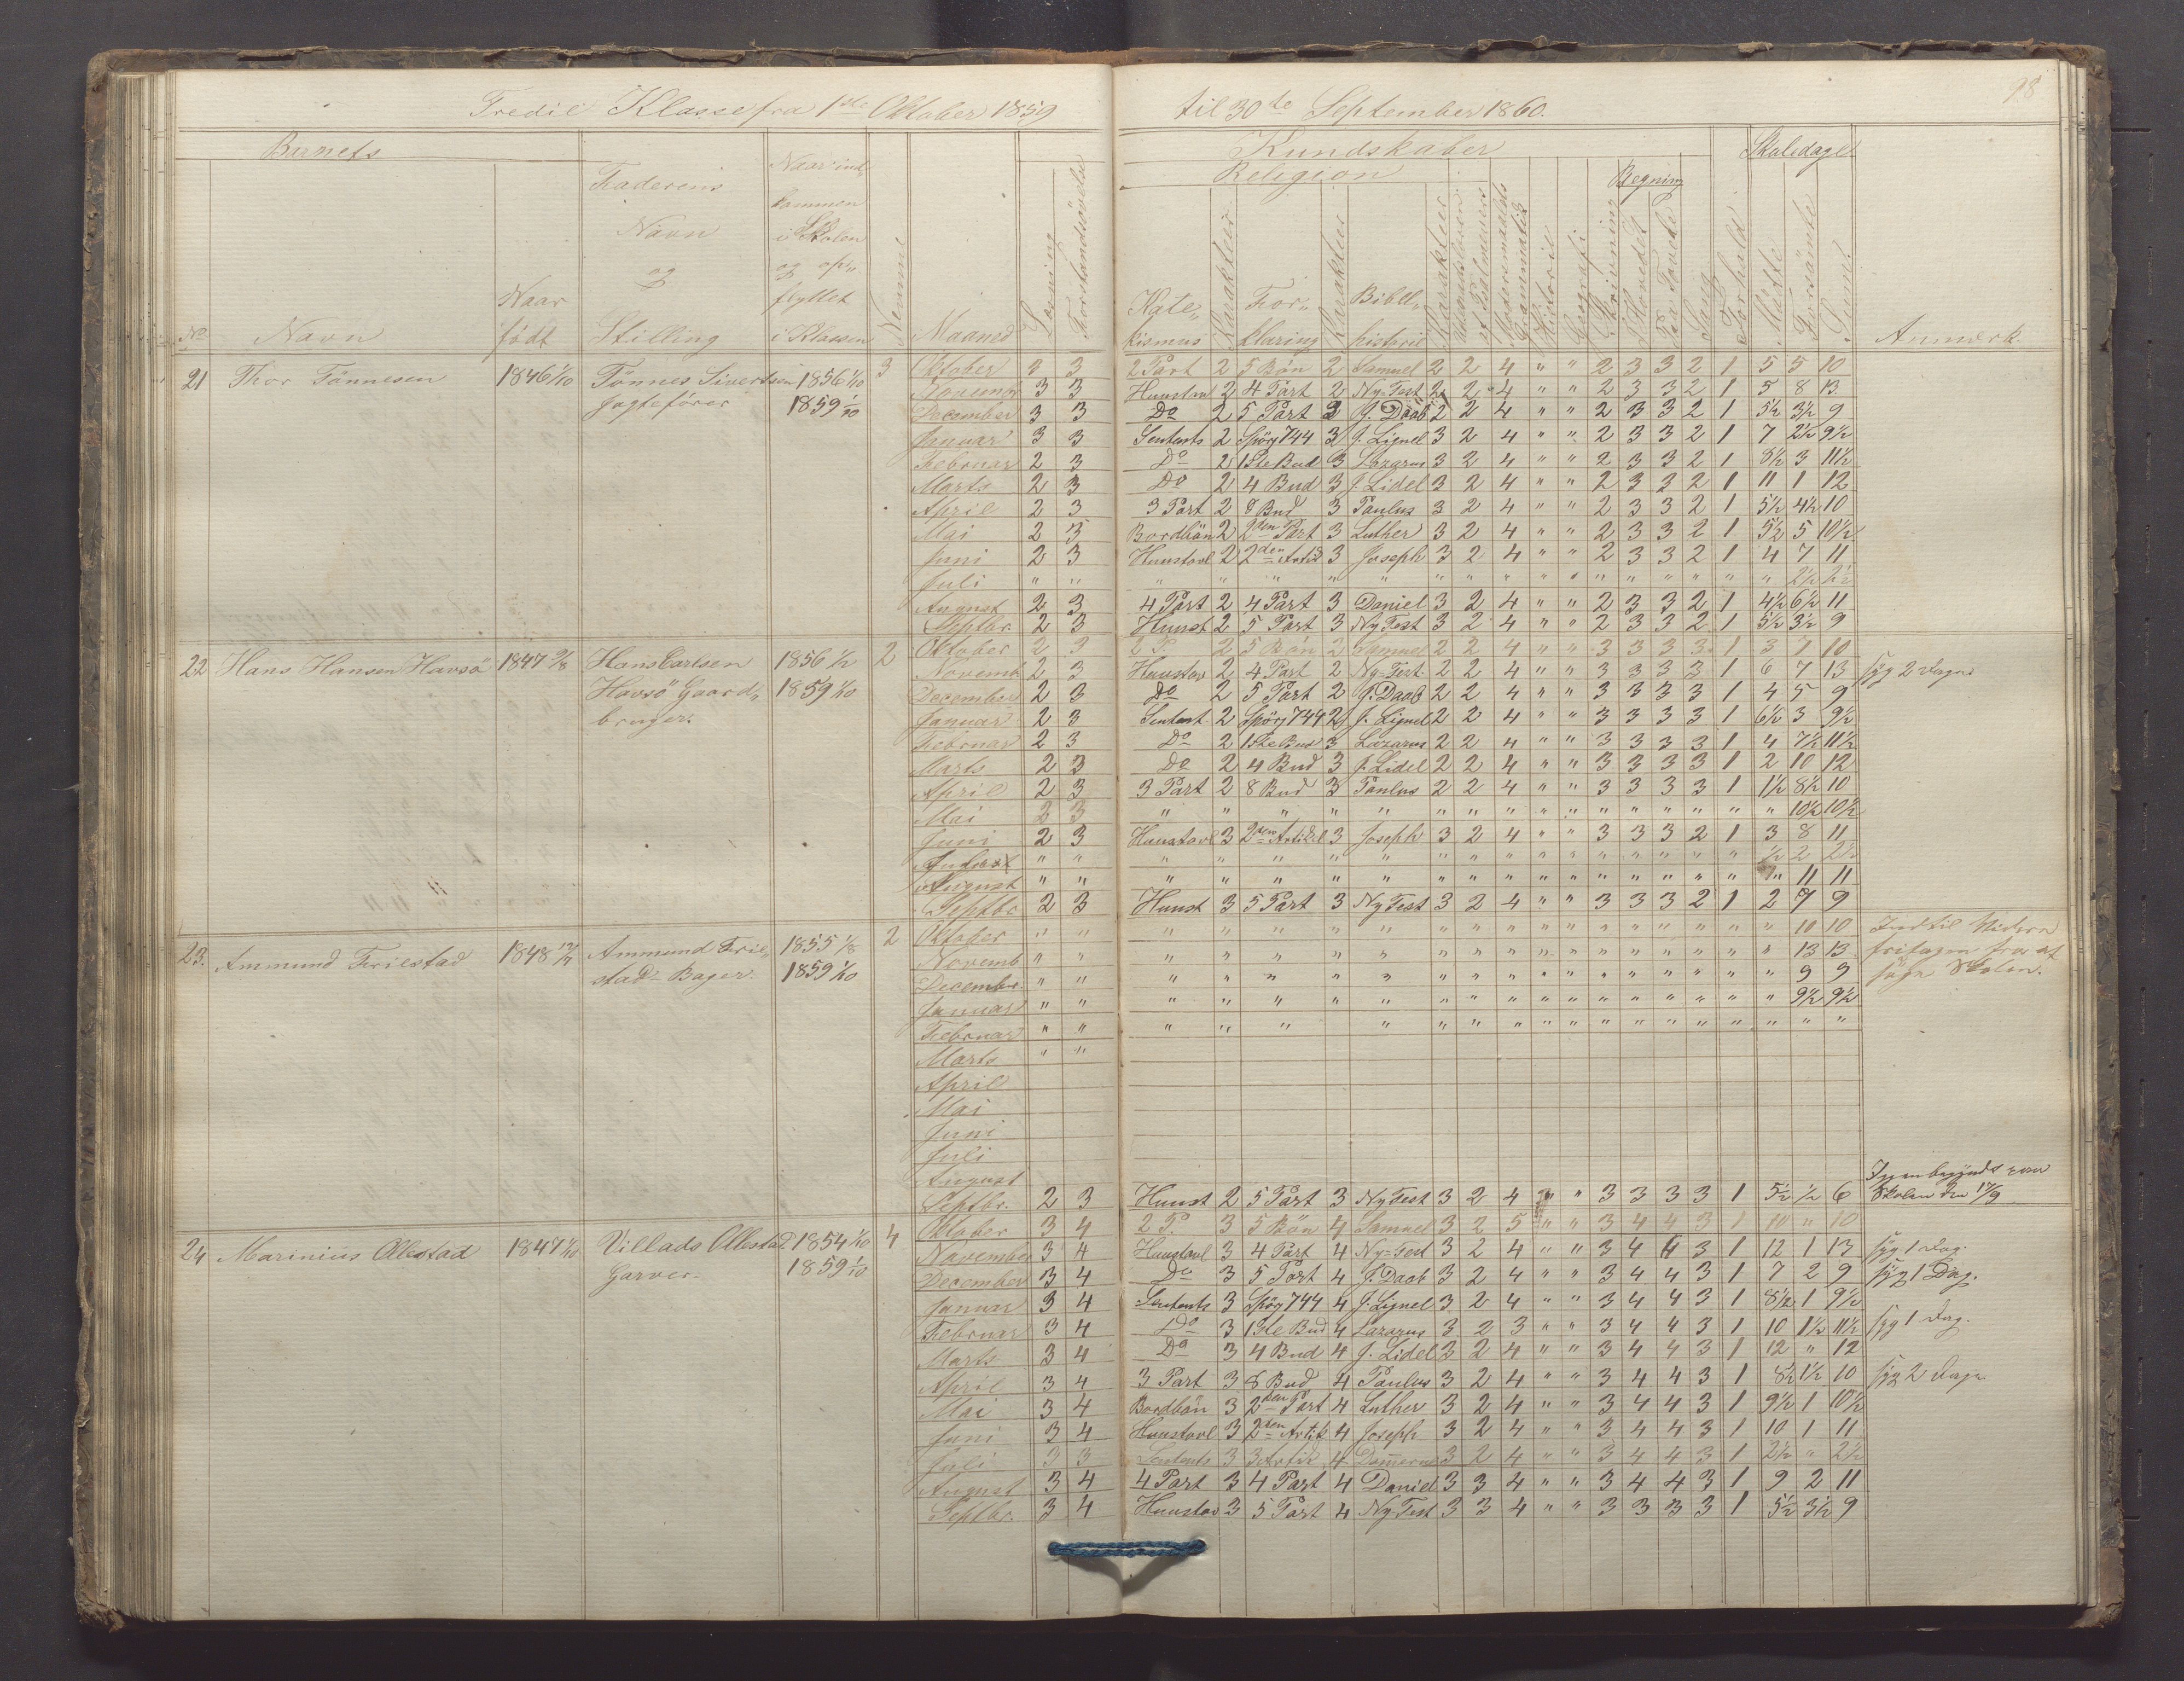 98
Tredie Klasse fra 1ste Oktober 1859 til 30te September 1860.
Barnets
Kundskaber
Skoledage
Religion
Regning
No
Navn
Naar
født
Faderens
Navn
og
Stilling
Naar ind
kommen
i Skolen
og op„
flyttet
i Klassen
Nemme
Maaned
Læsning
Forstandsøvelse
Kate„
kismus
Karakter
For„
klaring
Karakter
Bibel„
historie
Karakter
Modersmaalets
Gramatik
Historie
Geografi
Skrivning
I Hovedet
Paa Tavle
Sang
Forhold
Mødte
Forsømte
Sum
Anmærk.
21 Thor Tönnesen 1846 Tönnes Sivertsen 1856 1/10 3 Oktober 3 3 2 Part 2 5 Bøn 2 Samuel 2 2 4 " " 2 3 3 2 1 5 5 10
Jagtefører 1859 1/10 November 3 3 Huustav 2 4 Part 2 Ny=Test 2 2 4 " " 2 3 3 2 1 5 8 13
December 3 3 Do 2 5 Part 3 J. Daab 2 2 4 " " 2 3 3 2 1 5½ 3½ 9
Januar 3 3 Sentents 2 Spörg 744 3 J. Lignel 3 2 4 " " 2 3 3 2 1 7 2½ 9½
Februar 2 3 Do 2 1ste Bud 3 Lazarus 3 2 4 " " 2 3 3 2 1 8½ 3 11½
Marts 2 3 Do 2 4 Bud 3 J. Lidel 3 2 4 " " 2 3 3 2 1 11 1 12
April 2 3 3 Part 2 8 Bud 3 Paulus 3 2 4 " " 2 3 3 2 1 5½ 4½ 10
Mai 2 3 Bordbön 2 2den Part 3 Luther 3 2 4 " " 2 3 3 2 1 5½ 5 10½
Juni 2 3 Huustavl 2 2den Artik 3 Joseph 3 2 4 " " 2 3 3 2 1 4 7 11
Juli " " " " " " " " " " " " " " " " " " 2½ 2½
August 2 3 4 Part 2 4 Part 3 Daniel 3 2 4 " " 2 3 3 2 1 4½ 6½ 11
Septbr. 2 3 Huust 2 5 Part 3 Ny Test 3 2 4 " " 2 3 3 2 1 5½ 3½ 9
22 Hans Hansen Havsö 1847 Hans Carlsen 1856 1/2 2 Oktober 2 3 2 P. 2 5 Bön 2 Samuel 2 2 4 " " 3 3 3 3 1 3 7 10
Havsö Gaard„ 1859 1/10 Novemb 2 3 Huustav 2 4 Part 2 Ny=Test. 2 2 4 " " 3 3 3 3 1 6 7 13 syg 2 Dage
bruger. December 2 3 Do 2 5 Part 2 J. Daab 2 2 4 " " 3 3 3 3 1 4 5 9
Januar 2 3 Sentent 2 Spörg 744 2 J. Lignel 2 2 4 " " 3 3 3 3 1 6½ 3 9½
Februar 2 3 Do 2 1ste Bud 3 Lazarus 2 2 4 " " 3 3 3 3 1 4 7½ 11½
Marts 2 3 Do 2 4 Bud 3 J. Lidel 2 2 4 " " 3 3 3 3 1 2 10 12
April 2 3 3 Part 2 8 Bud 3 Paulus 2 2 4 " " 3 3 3 3 1 1½ 8½ 10
Mai 2 3 " " " " " " " " " " " " " " " " 10½ 10½
Juni 2 3 Huustavl 3 2den Artikel 3 Joseph 3 2 4 " " 3 3 3 2 1 3 8 11
" " " " " " " " " " " " " " " " " ½ 2 2½
August " " " " " " " " " " " " " " " " " " 11 11
Septbr 2 3 Huust 3 5 Part 3 Ny Test 3 2 4 " " 3 3 3 2 1 2 7 9
23. Ammund Friestad 1848 Ammund Frie„ 1855 1/8 2 Oktober " " " " " " " " " " " " " " " " " " 10 10 Indtil Videre
stad - Bager. 1859 1/10 Novemb " " " " " " " " " " " " " " " " " " 13 13 fritagen fra at
Decembr. " " " " " " " " " " " " " " " " " " 9 9 søge Skolen.
Januar " " " " " " " " " " " " " " " " " " 9½ 9½
Februar " " " " " " " " " " " " " " " " " " "
Marts " "
April
Mai
Juni
Juli
August
Septbr. 2 3 Huust 2 5 Part 3 Ny Test 3 2 4 " " 3 3 3 3 1 5½ ½ 6 Skolen den
24 Marinius Ollestad 1847 Villads Ollestad 1854 1/10 4 Oktober 3 4 2 P. 3 5 Bön 4 Samuel 3 2 5 " " 3 4 4 3 1 10 " 10
Garver. 1859 1/10 November 3 4 Huustavl 3 4 Part 4 Ny=Test 3 2 4 " " 3 4 4 3 1 12 1 13 syg 1 Dag.
December 3 4 Do 3 5 Part 4 J. Daab 3 2 4 " " 3 4 4 3 1 7 2 9 syg 1 Dag.
Januar 3 4 Sentents 3 Spörg 744 4 J. Lignel 3 2 4 " " 3 4 4 3 1 8½ 1 9½
Februar 3 4 Do 3 1ste Bud 4 Lazarus 3 2 3 " " 3 4 4 3 1 10 1½ 11½ syg 1 Dag.
Marts 3 4 Do 3 4 Bud 4 J. Lidel 3 2 4 " " 3 4 4 3 1 12 " 12
April 3 4 3 Part 3 8 Bud 4 Paulus 3 2 4 " " 3 4 4 3 1 8½ 1½ 10 syg 2 Dage
Mai 3 4 Bordbön 3 2den Part 4 Luther 3 2 4 " " 3 4 4 3 1 9½ 1 10½
Juni 3 4 Huustavl 3 2den Artik 4 Joseph 3 2 4 " " 3 4 4 3 1 10 1 11
Juli 3 3 Sentents 3 3 Artik 4 3 2 4 " " 3 4 4 3 1 2½ " 2½
August 3 4 4 Part 3 4 Part 4 Daniel 3 3 4 " " 3 4 4 3 1 9 2 11
Septbr. 3 4 Huustav 3 5 Part 4 Ny Test 3 3 4 " " 3 3 3 3 1 5½ 3½ 9